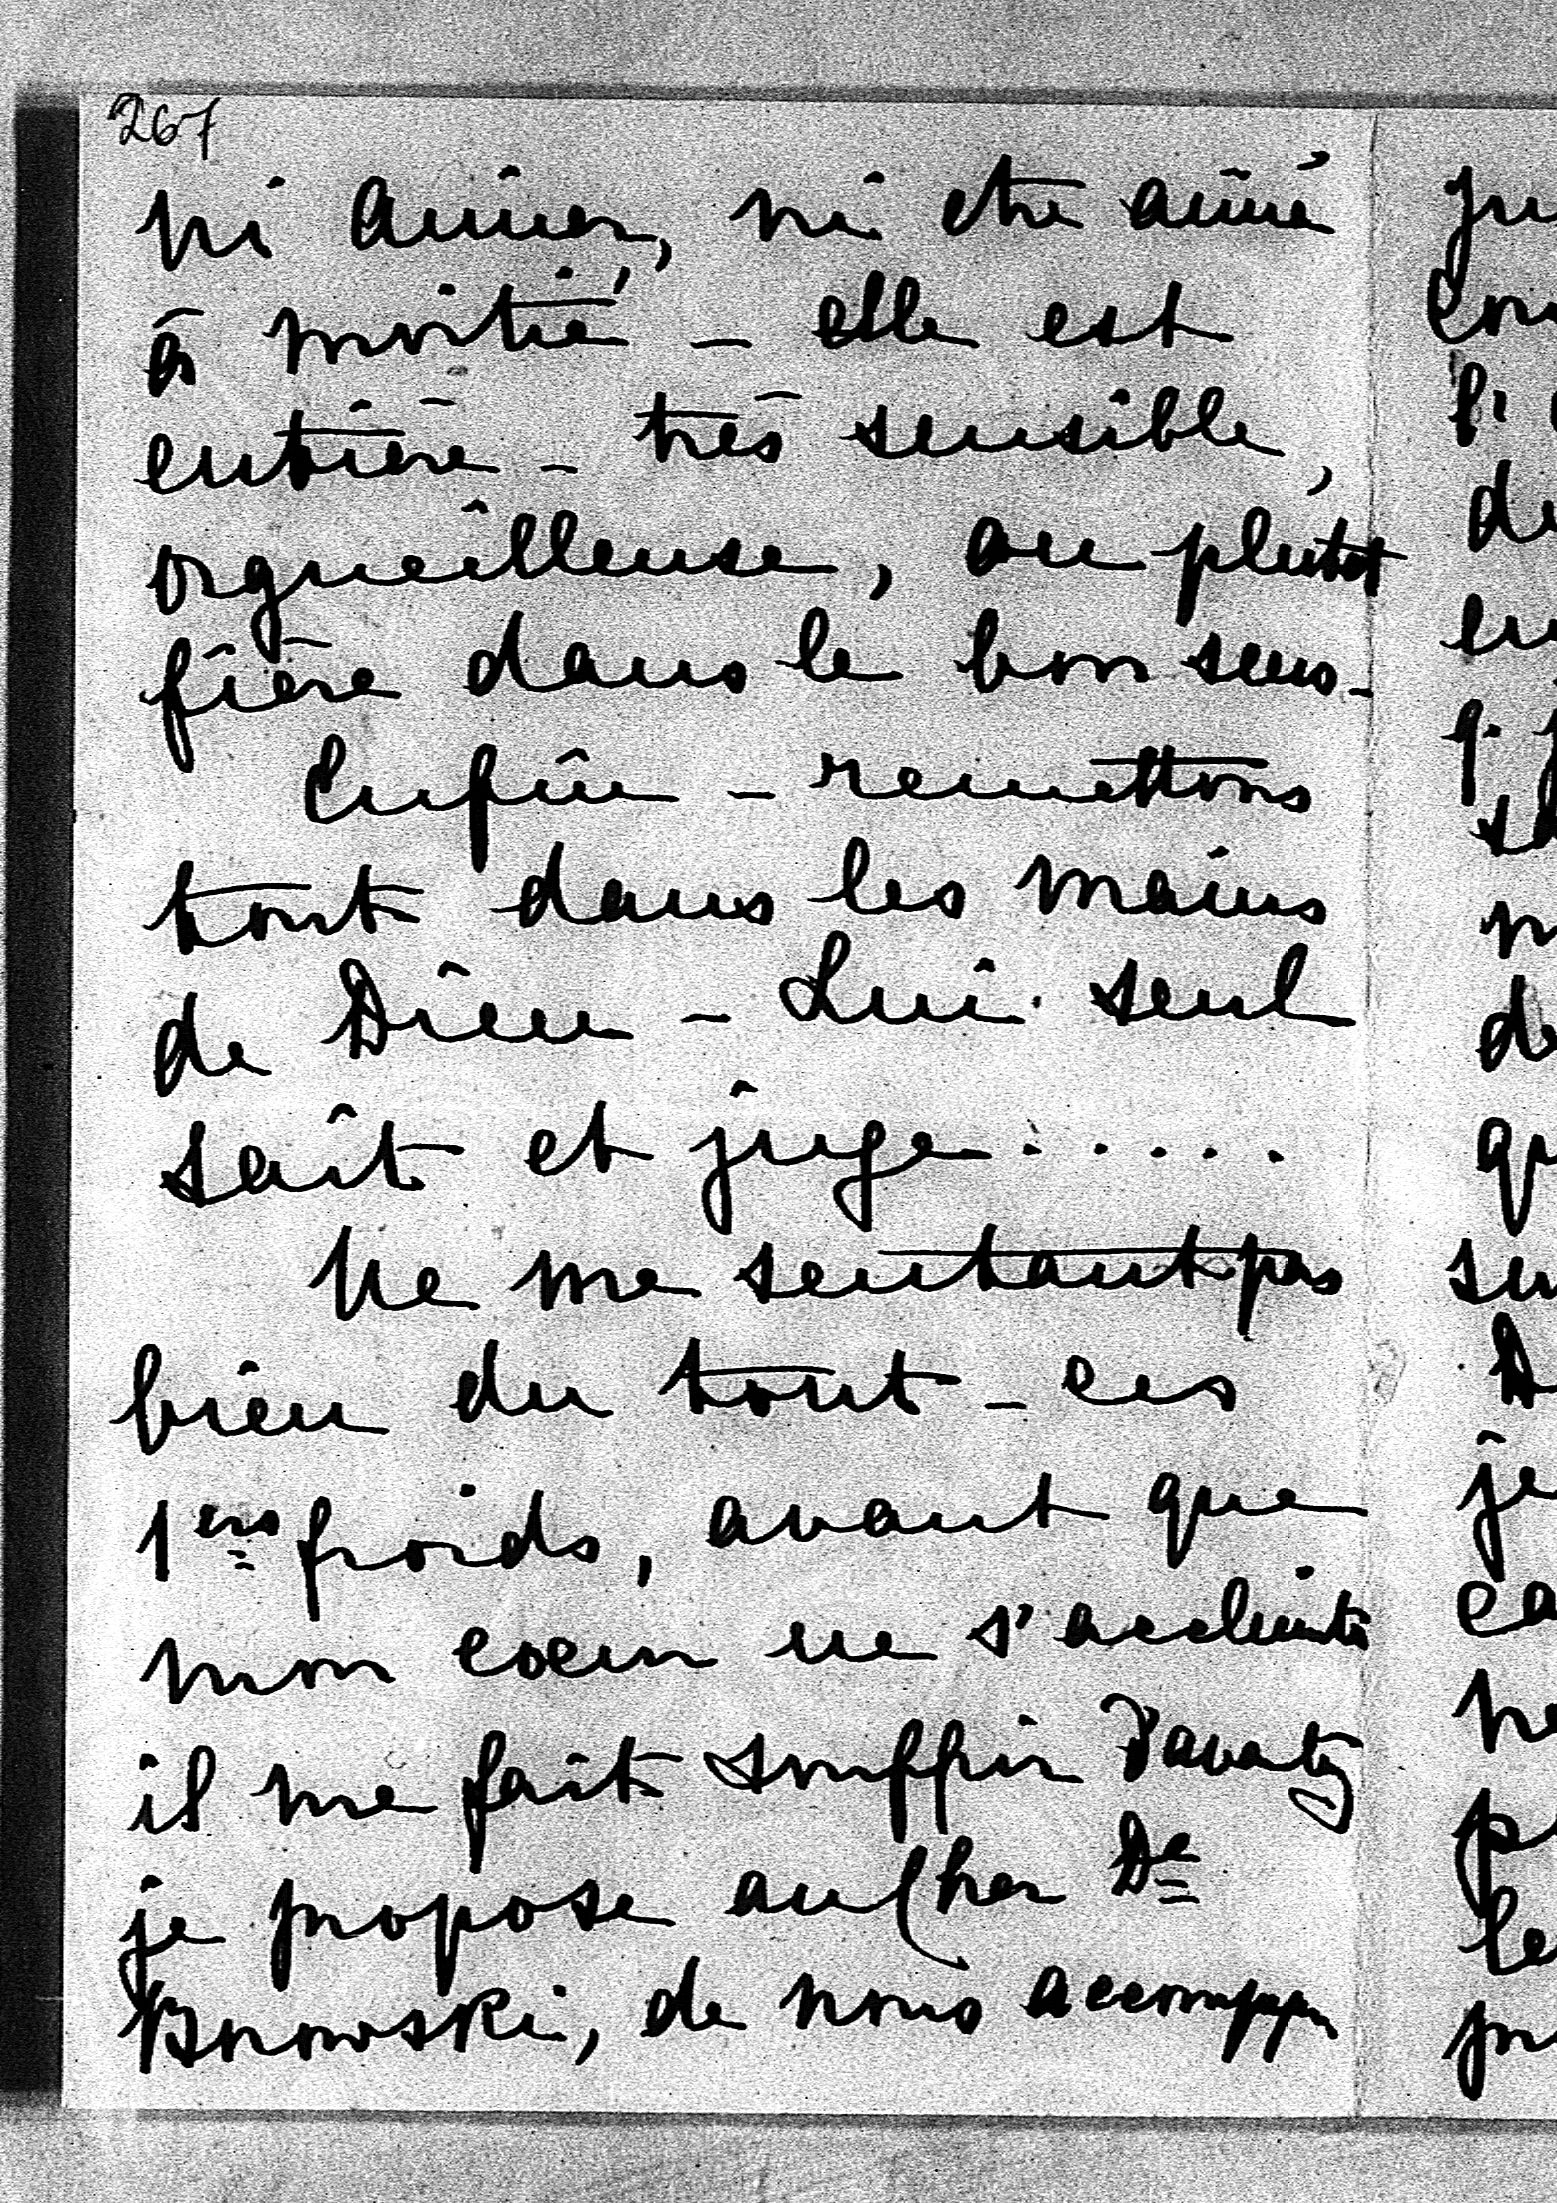 267
ni aimer, ni être aimé
à moitié - elle est
entière - très sensible,
orgueilleuse, ou plutôt
fière dans le bon sens -
Enfin - remettons
tout dans les mains
de Dieu - Lui seul
sait et juge .....
Ne me sentant pas
bien du tout - ces
1ers froids, avant que
mon coeur ne s'acclimate
il me fait souffrir davantg
je propose au Cher Dr
de nous accompagn